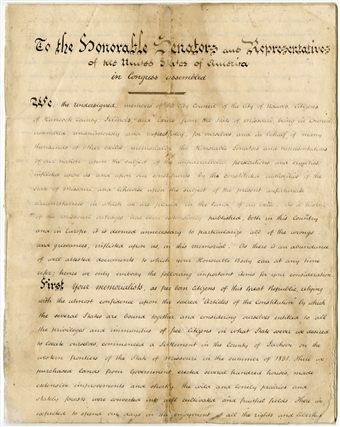 To the Honorable Senators and Representatives
of the United States of America
in Congress assembled
We, the undersigned, members of the City Council of the City of Nauvoo, Citizens
of Hancock County, Illinois, and exiles from the State of Missouri, being in Council
assembled, unanimously and respectfully, for ourselves and in behalf of many
thousands of other exiles, memorialize the Honorable Senators and representatives
of our nation upon the subject of the unparalleled persecutions and cruelties
inflicted upon us and upon our constituents by the constituted authorities of the
State of Missouri and likewise upon the subject of the present unfortunate
circumstances in which we are placed in the land of our exile. As a history
of the Missouri outrages has been extensively published, both in this Country
and in Europe, it is deemed unnecessary to particularize all of the wrongs
and grievances inflicted upon us, in this memorial. As there is an abundance
of well attested documents to which your Honorable Body can at any time
refer; hence we only embody the following important items for your consideration
First Your memorialists, as free born Citizens of this Great Republic, relying
with the utmost confidence upon the sacred "Articles of the Constitution" by which
the several States are bound together and considering ourselves entitled to all
the privileges and immunities of free Citizens in what State soever we desired
to locate ourselves, commenced a settlement in the County of Jackson on the
western frontiers of the State of Missouri in the summer of 1831. There we
purchased lands from Government, erected several hundred houses, made
extensive improvements and shortly the wild and lonely prairies and
stately forests were converted into well cultivated and fruitful fields. There we
expected to spend our days in the enjoyment of all the rights and liberties